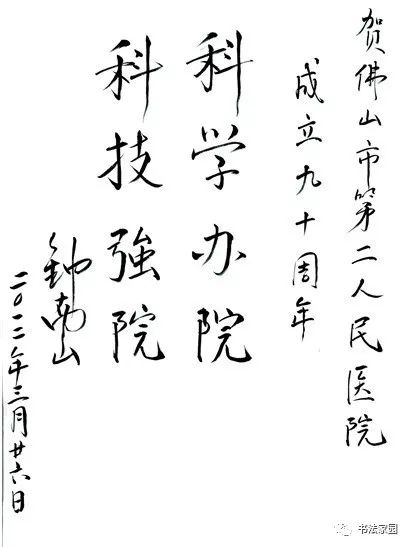 贺佛山市第二人民医院
成立九十周年
科学办院
科技強院
钟南山
二〇一二年三月廿六日
书法家园